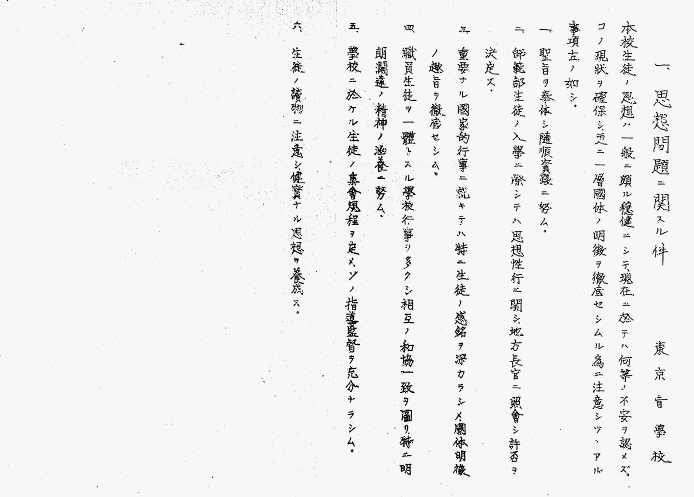 一、思想問題ニ関スル件　　東京盲學校
本校生徒ノ思想ハ一般ニ頗ル穏健ニシテ現在ニ於テハ何等ノ不安ヲ認メズ
コノ現状ヲ確保シ更ニ一層國体ノ明徴ヲ徹底セシムル為ニ注意シツヽアル
事項左ノ如シ。
一、聖旨ヲ奉体シ随順實踐ニ努ム。
二、師範部生徒ノ入學ニ際シテハ思想性行ニ関シ地方長官ニ照會シ許否ヲ
決定ス。
三、重要ナル國家的行事ニ就キテハ特ニ生徒ノ感銘ヲ深カラシメ國体明徴
ノ趣旨ヲ徹底セシム。
四、職員生徒ヲ一體トスル學校行事ヲ多クシ相互ノ和協一致ヲ圖リ特ニ明
朗濶達ノ精神ノ涵養ニ努ム。
五、學校ニ於ケル生徒ノ集會規程ヲ定メソノ指導監督ヲ充分ナラシム。
六、生徒ノ讀物ニ注意シ健實ナル思想ヲ養成ス。